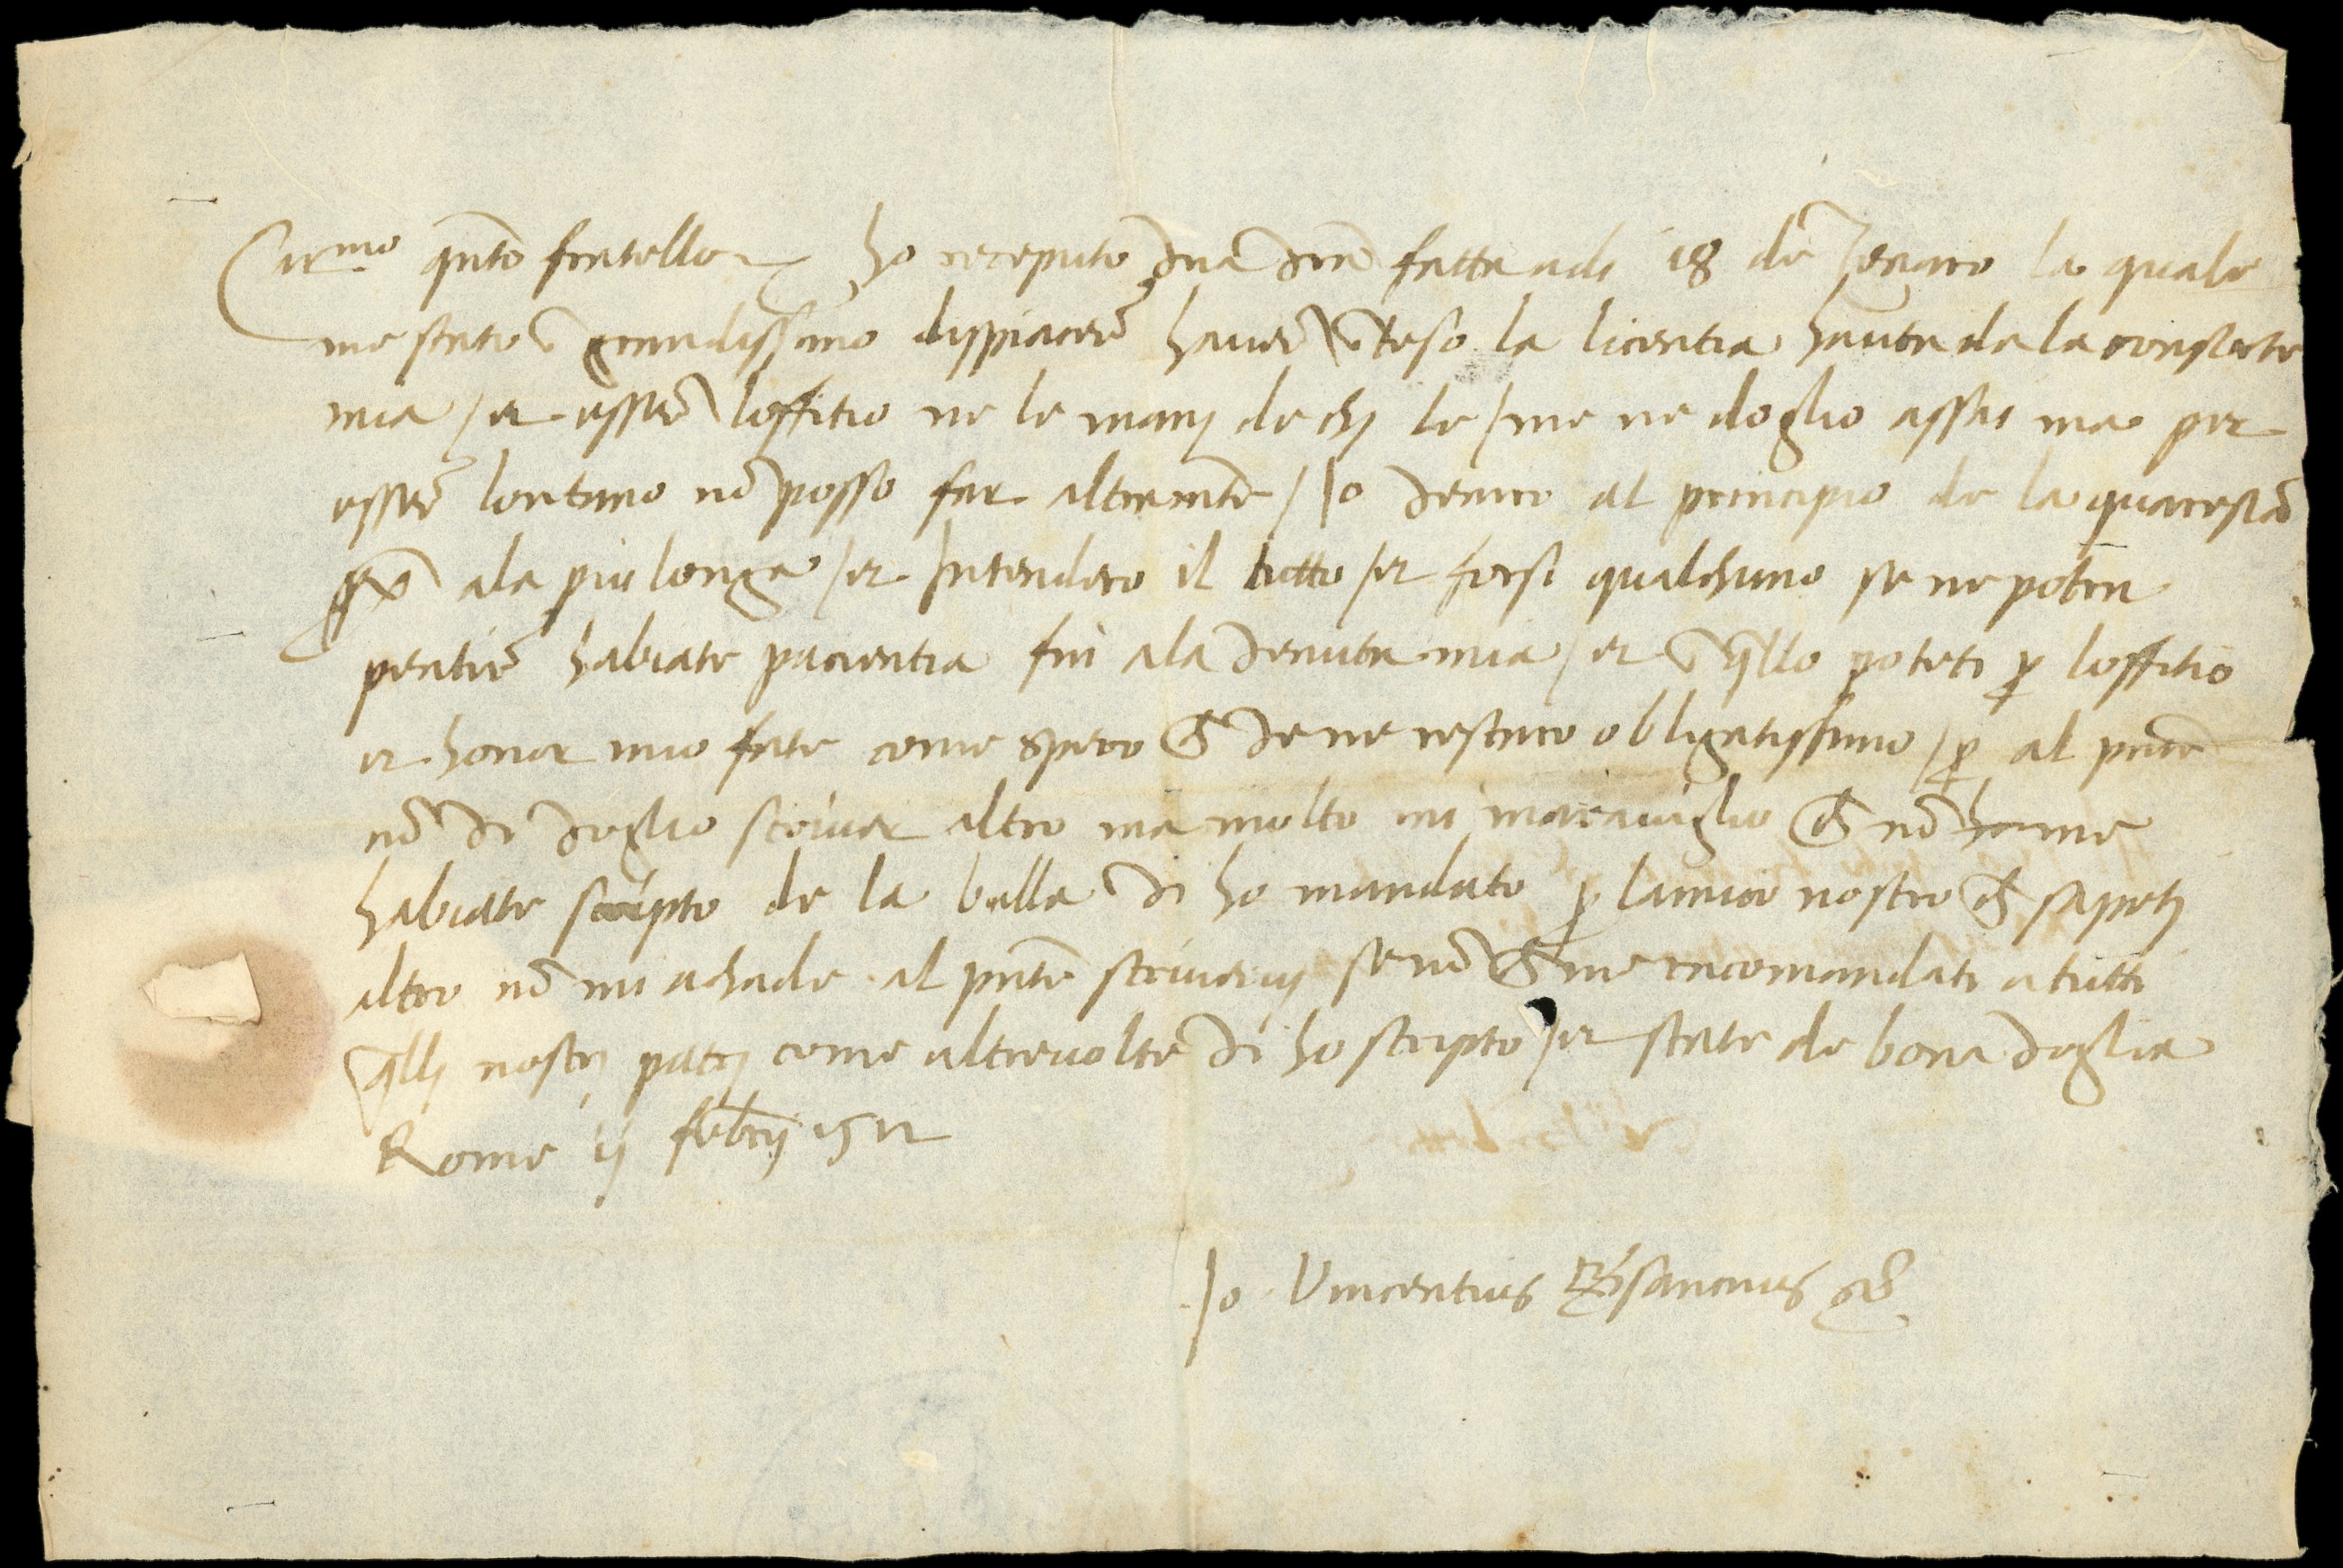 Car.mo qnto fratello ho receputo vna vra fatta adi 18 de Jenaro la quale
me stato ĩ grandissimo dispiacere hauer ĩteso la licentia hauta da la consorte
mia / et esser loffitio ne le manj de chj le / me ne doglio assai ma per
essere lontano nõ posso far altramẽte / Io venirò al principio de la quaresima
ala piu longa / et Intendero il tutto / et forsi qualchuno se ne potria
pentire habiate pacientia fin ala venuta mia / et ĩ qllo poteti p loffitio
et honor mio fate come spero che ve ne restaro obligatissimo / p al pñte
nõ vi voglio scriuer altro ma molto mi marauiglio che nõ me
habiate scripto de la bulla vi ho mandato p lamico nostro che sapetj
altro nõ mi achade al pñte scriuerui se nõ che me racomandati a tutti
qllj nostrj patrj come altre volte vi ho scripto / et state de bona voglia
Rome ij febrij 1512
Io Vincentius